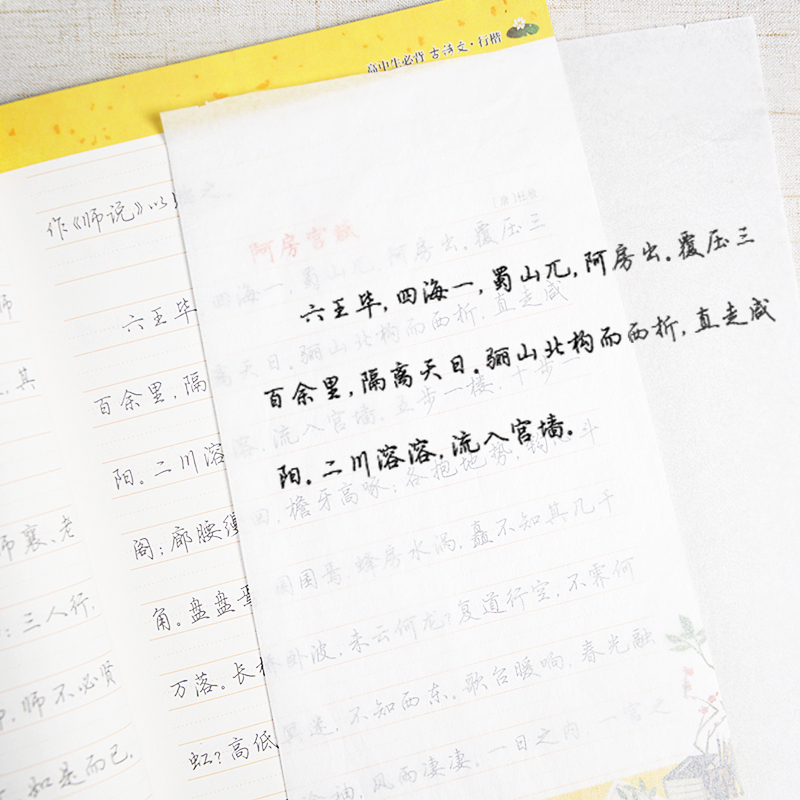 高中生必背古诗文·行楷
作《师说》以
阿房宫赋
六王毕，四海一，蜀山兀，阿房出。覆压三
百余里，隔离天日。骊山北构而西折，直走咸
阳。二川溶溶，流入宫墙。五步一楼，十步一
阁；廊腰缦
檐牙高啄；各抱地势，钩心斗
角。盘盘焉
囷囷焉，蜂房水涡，矗不知其几千
万落。长桥卧波，未云何龙？复道行空，不霁何
虹？高低冥迷，不知西东。歌台暖响，春光融
风雨凄凄。一日之内，一宫之
师
其
师襄、老
：三人行，
师不必贤
如是而已，